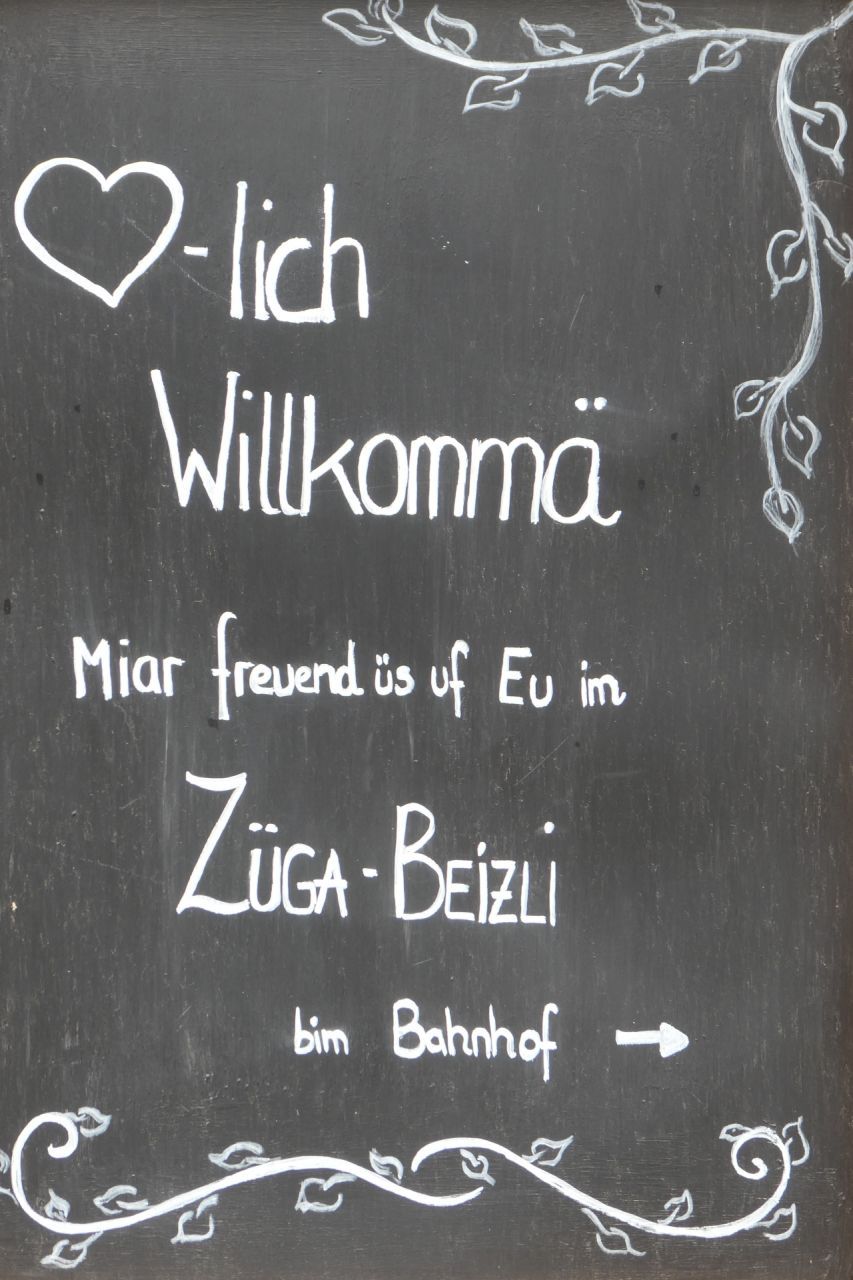 ♡-lich
Willkommä
Miar freuend üs uf Eu im
ZÜGA-BEiZLi
bim Bahnhof →